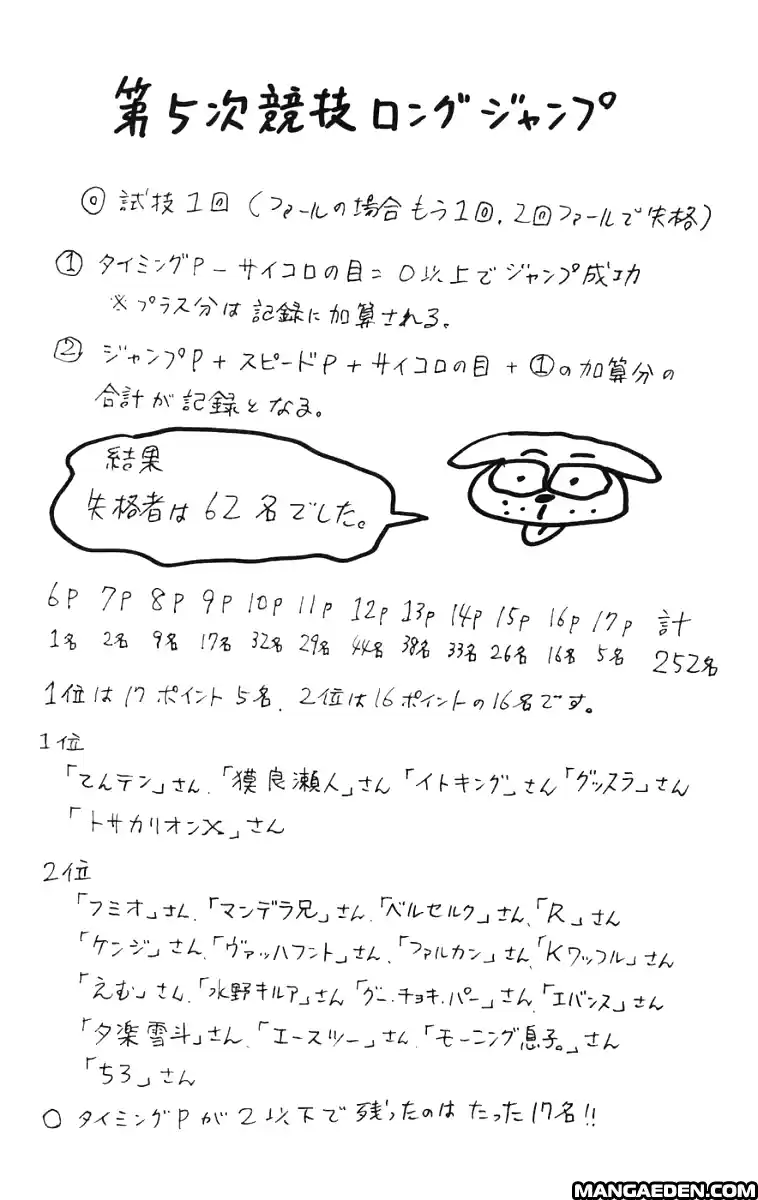 第5次競技ロングジャンプ
◎ 試技1回(ファールの場合もう1回、2回ファールで失格)
① タイミングP－サイコロの目＝0以上でジャンプ成功
※プラス分は記録に加算される。
② ジャンプP＋スピードP＋サイコロの目＋①の加算分の
合計が記録となる。
結果
失格者は62名でした。
6P 7P 8P 9P 10P 11P 12P 13P 14P 15P 16P 17P 計
1名 2名 9名 17名 32名 29名 44名 38名 33名 26名 16名 5名 252名
1位は17ポイント5名、2位は16ポイントの16名です。
1位
「てんテン」さん、「獏良瀬人」さん「イトキング」さん「グッスラ」さん
「トサカリオンX」さん
2位
「フミオ」さん、「マンデラ兄」さん、「ベルセルク」さん、「R」さん
「ケンジ」さん、「ヴァッハフント」さん、「ファルカン」さん、「Kワッフル」さん
「えむ」さん、「水野キルア」さん「グー・チョキ・パー」さん、「エバンス」さん
「夕楽雪斗」さん、「エースツー」さん、「モーニング息子。」さん
「ちろ」さん
○ タイミングPが2以下で残ったのはたった17名!!
MANGAEDEN.COM